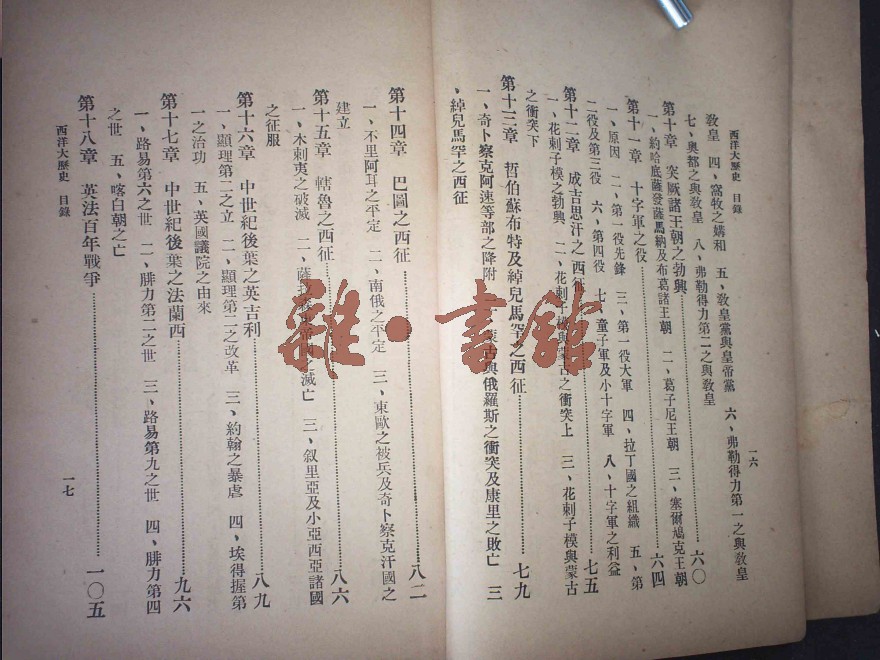 西洋大歷史 目錄
一六
敎皇 四、窩牧之媾和 五、敎皇黨與皇帝黨 六、弗勒得力第一之與敎皇
七、奧都之與敎皇 八、弗勒得力第二之與敎皇
第十章 突厥諸王朝之勃興 六〇
一、約哈底薩發薩馬納及布葛諸王朝 二、葛子尼王朝 三、塞爾鳩克王朝
第十一章 十字軍之役 六四
一、原因 二、第一役先鋒 三、第一役大軍 四、拉丁國之組織 五、第
二役及第三役 六、第四役 七、童子軍及小十字軍 八、十字軍之利益
第十二章 成吉思汗之西征 七五
一、花剌子模之勃興 二、花剌子模與蒙古之衝突上 三、花剌子模與蒙古
之衝突下
第十三章 哲伯蘇布特及綽兒馬罕之西征 七九
一、奇卜察克阿速等部之降附 蒙古與俄羅斯之衝突及康里之敗亡 三
、綽兒馬罕之西征
第十四章 巴圖之西征 八二
一、不里阿耳之平定 二、南俄之平定 三、東歐之被兵及奇卜察克汗國之
建立
第十五章 轄魯之西征 八六
一、木剌夷之破滅 二、薩 之滅亡 三、叙里亞及小亞西亞諸國
之征服
第十六章 中世紀後葉之英吉利 八九
一、顯理第二之立 二、顯理第二之改革 三、約翰之暴虐 四、埃得握第
一之治功 五、英國議院之由來
第十七章 中世紀後葉之法蘭西 九六
一、路易第六之世 二、腓力第二之世 三、路易第九之世 四、腓力第四
之世 五、喀白朝之亡
第十八章 英法百年戰爭 一〇五
西洋大歷史 目錄
一七
雜·書館